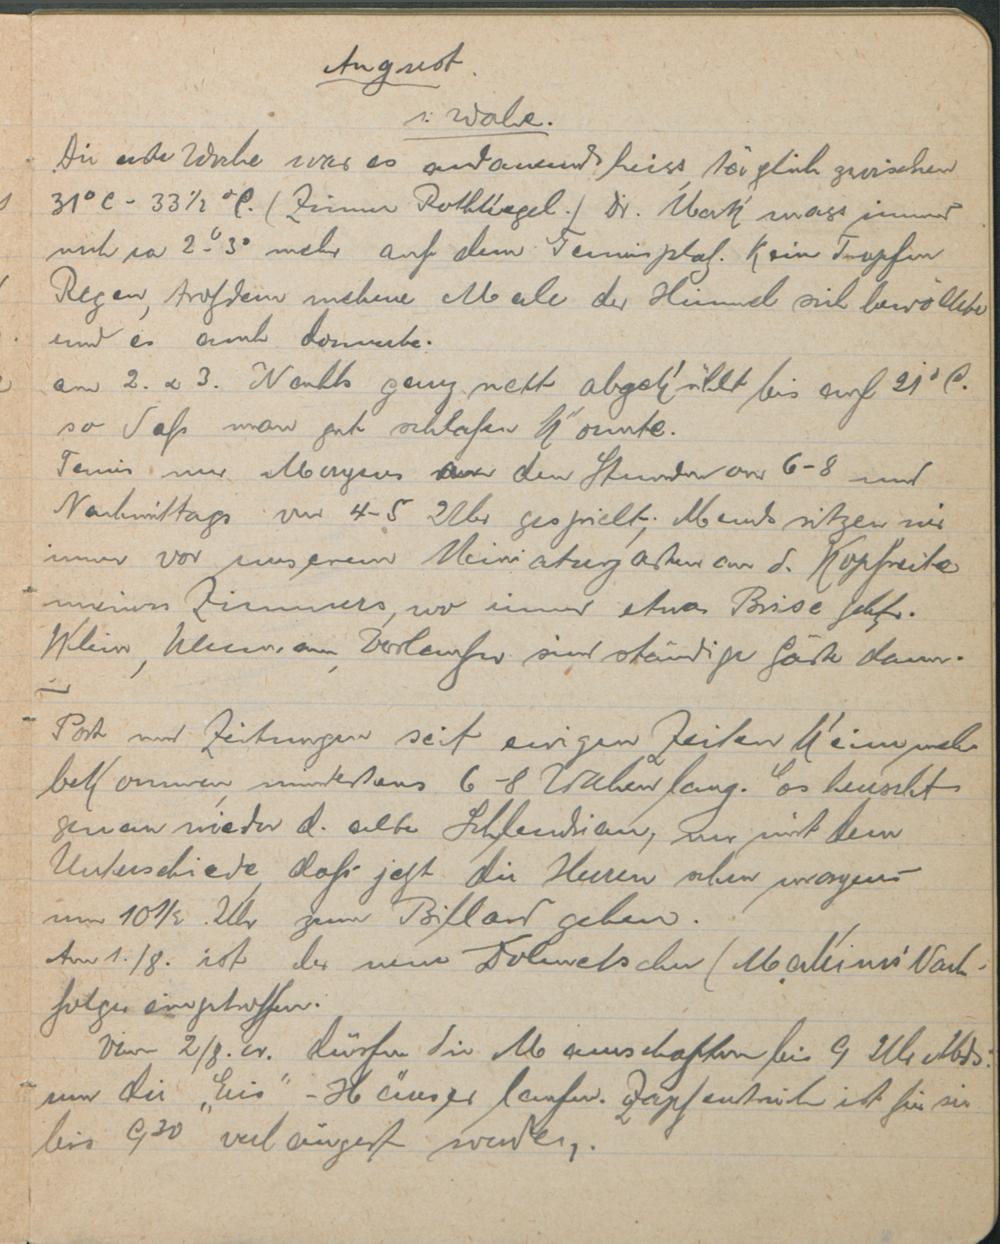 August.
1. Woche.
Die erste Woche war es andauernd heiss, täglich zwischen
31°C - 33½ °C. (Zimmer Rothkegel.) Dr. MarK mass immer
noch ca 2°-3° mehr auf dem Tennisplatz. Kein Tropfen
Regen, trotzdem mehrere Male der Himmel sich bewölkte
und es auch donnerte.
am 2. & 3. Nachts ganz nett abgekühlt bis auf 21° C.
so daß man gut schlafen konnte.
Tennis nur Morgens in den Stunden von 6-8 und
Nachmittags von 4-5 Uhr gespielt; Abends sitzen wir
immer vor unserem Miniaturgarten an d. Kopfseite
meines Zimmers, wo immer etwas Brise geht.
Klein, Neumann, sind ständige Gäste dann.
Post und Zeitungen seit ewigen Zeiten Keine mehr
bekommen, mindestens 6-8 Wochen lang. Es herrscht
genau wieder d. alte Schlendrian, nur mit dem
Unterschiede, daß jetzt die Herren schon morgens
um 10½ Uhr zum Billard gehen.
Am 1./8. ist der neue Dolmetscher (Nach-
folger eingetroffen.
Vom 2/8. cr. dürfen die Mannschaften bis 9 Uhr Abds.
um die „Eis" - Häuser laufen. Zapfenstreich ist für sie
bis 9,30 verlängert worden.